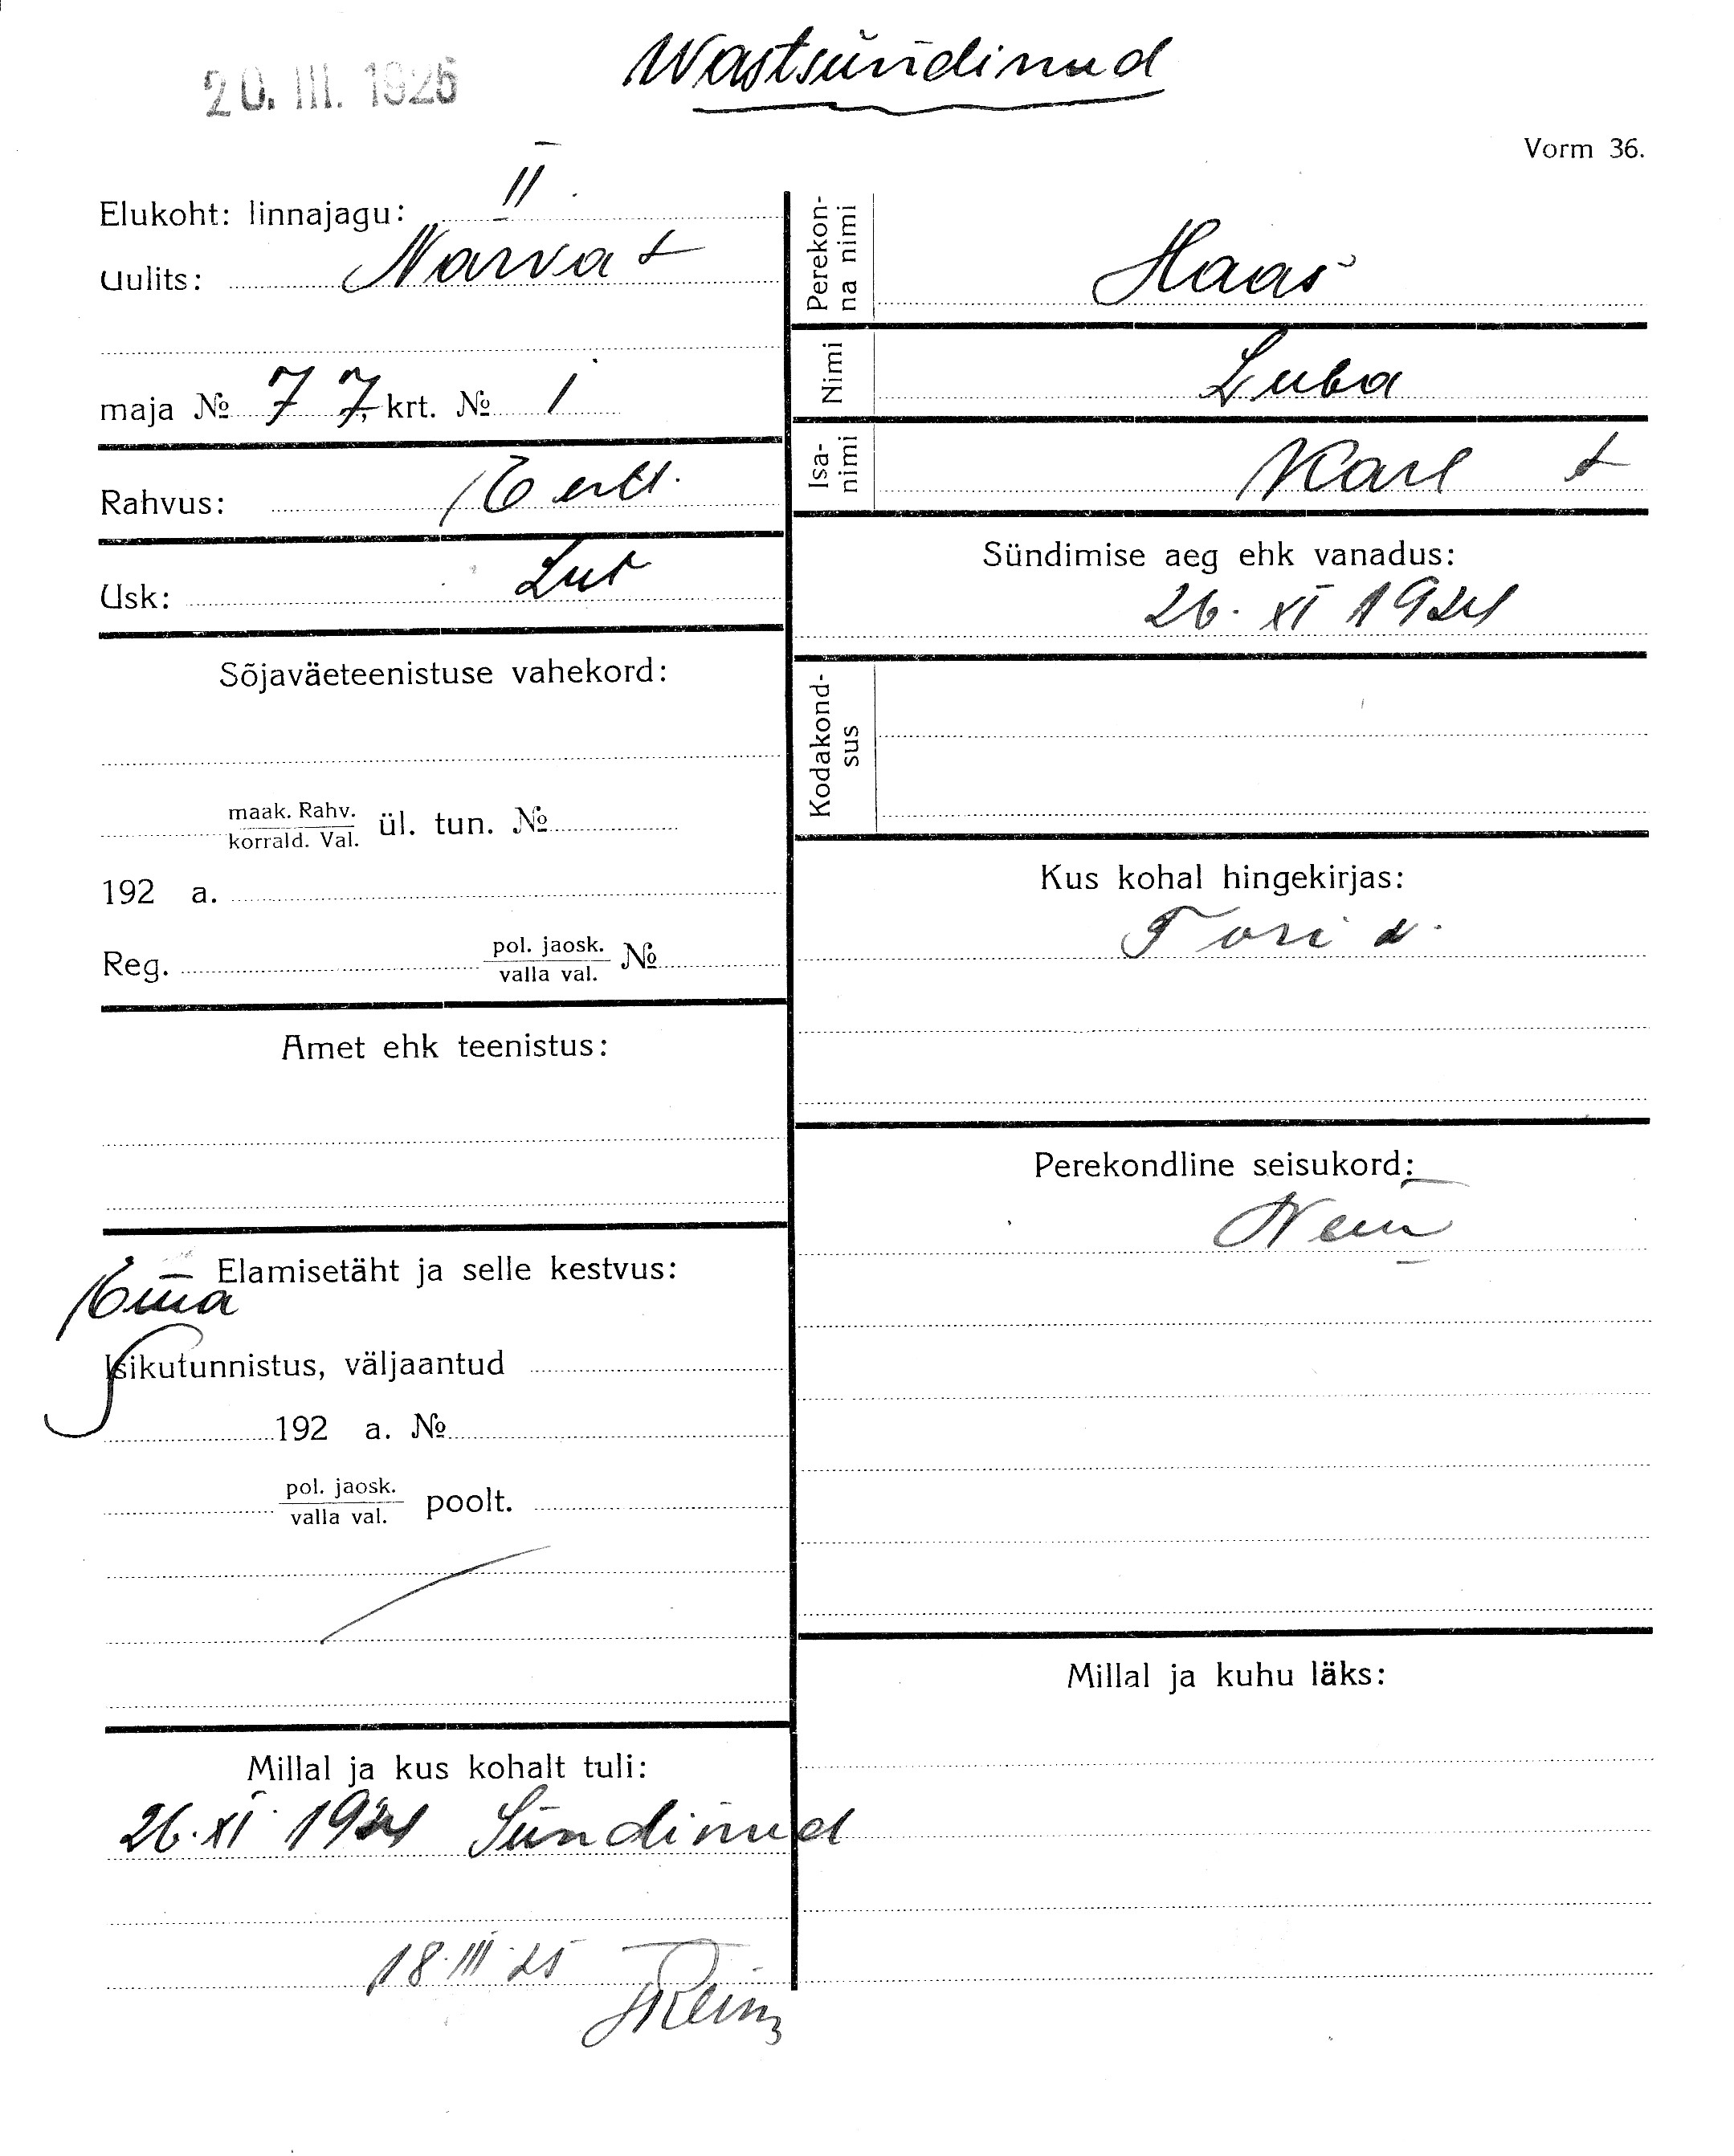 20. III. 1925
Wastsündinud
Vorm 36.
Elukoht: linnajagu: II
Uulits: Narva t
maja № 77, krt. № 1
Rahvus: Eestl.
Usk: Lut
Sõjaväeteenistuse vahekord:
maak. Rahv.
korrald. Val. ül. tun. №
192 a.
Reg. pol. jaosk.
valla val. №
Amet ehk teenistus:
Elamisetäht ja selle kestvus:
Ema
Isikutunnistus, väljaantud
192 a. №
pol. jaosk.
valla val. poolt.
Millal ja kus kohalt tuli:
26. XI 1924 Sündinud
18. III 25
Perekon-
na nimi Haas
Nimi Luba
Isa-
nimi Karl t
Sündimise aeg ehk vanadus:
26. XI 1924
Kodakond-
sus
Kus kohal hingekirjas:
Tori v.
Perekondline seisukord:
Millal ja kuhu läks: